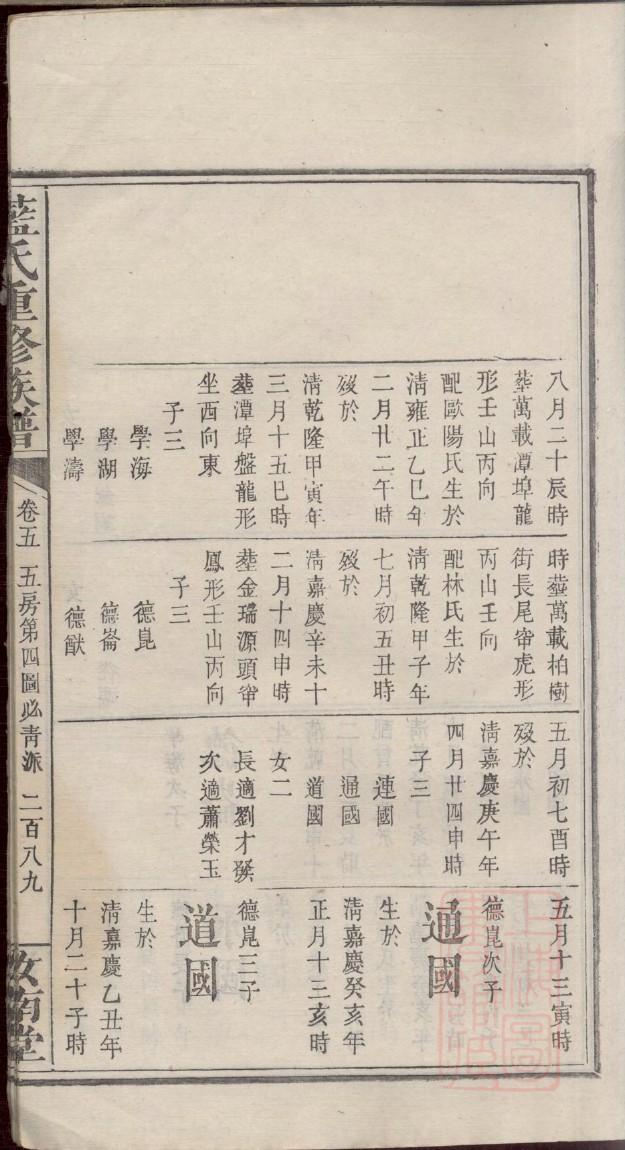 八月二十辰時
葬萬載潭埠龍
形壬山丙向
配歐陽氏生於
清雍正乙巳年
二月廿二午時
歿於
清乾隆甲寅年
三月十五巳時
葬潭埠盤龍形
坐西向東
子三
學海
學湖
學濤
時葬萬載柏樹
街長尾峇虎形
丙山壬向
配林氏生於
清乾隆甲子年
七月初五丑時
歿於
清嘉慶辛未十
二月十四申時
葬金瑞源頭峇
鳳形壬山丙向
子三
德崑
德崙
德猷
五月初七酉時
歿於
清嘉慶庚午年
四月廿四申時
子三
連國
通國
道國
女二
長適劉才
次適蕭榮玉
五月十三寅時
德崑次子
通國
生於
清嘉慶癸亥年
正月十三亥時
德崑三子
道國
生於
清嘉慶乙丑年
十月二十子時
藍氏重修族譜
卷五 五房第四圖必青派 二百八九
汝南堂